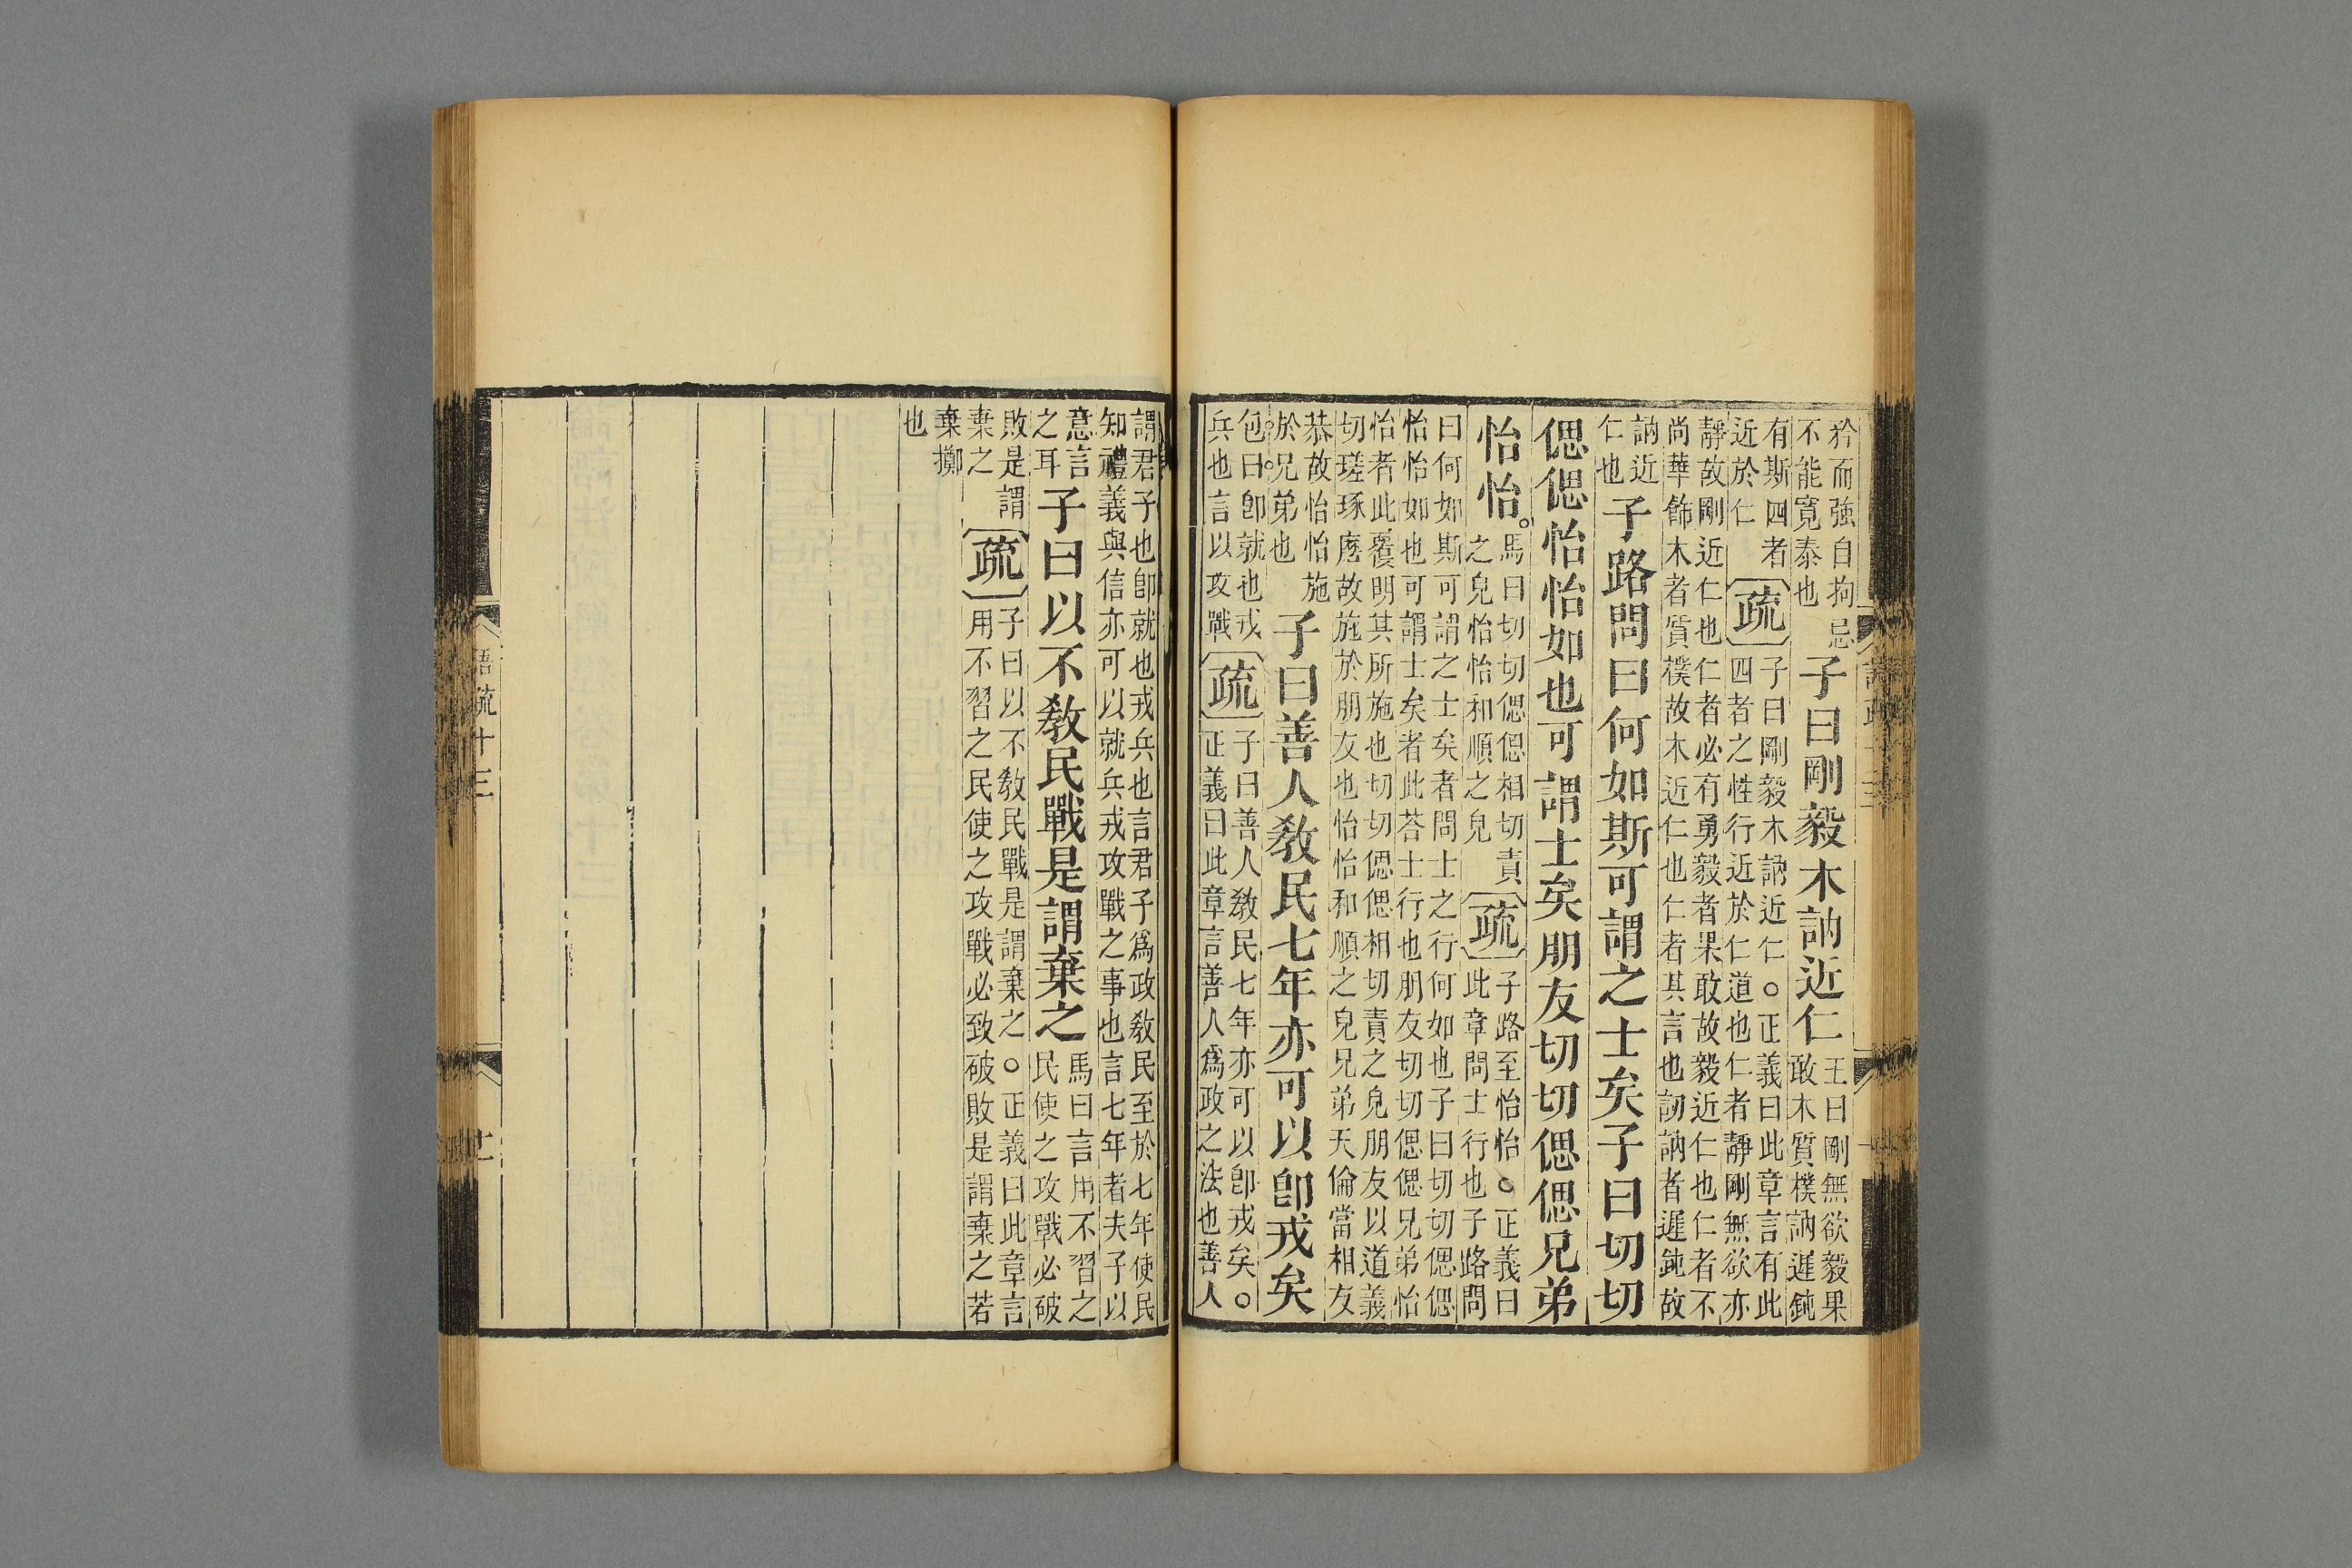 矜而強自拘忌
不能寬泰也
子曰剛毅木訥近仁
王曰剛無欲毅果
敢木質樸訥遲鈍
有斯四者
近於仁
疏
子曰剛毅木訥近仁○正義曰此章言有此
四者之性行近於仁道也仁者靜剛無欲亦
靜故剛近仁也仁者必有勇毅者果敢故毅近仁也仁者不
尚華飾木者質樸故木近仁也仁者其言也訒訥者遲鈍故
訥近
仁也
子路問曰何如斯可謂之士矣子曰切切
偲偲怡怡如也可謂士矣朋友切切偲偲兄弟
怡怡。
馬曰切切偲偲相切責
之皃怡怡和順之皃
疏
子路至怡怡○正義曰
此章問士行也子路問
曰何如斯可謂之士矣者問士之行何如也子曰切切偲偲
怡怡如也可謂士矣者此荅士行也朋友切切偲偲兄弟怡
怡者此覆明其所施也切切偲偲相切責之皃朋友以道義
切瑳琢磨故施於朋友也怡怡和順之皃兄弟天倫當相友
恭故怡怡施
於兄弟也
子曰善人敎民七年亦可以卽戎矣
包曰卽就也戎
兵也言以攻戰
疏
子曰善人敎民七年亦可以卽戎矣○
正義曰此章言善人爲政之法也善人
謂君子也卽就也戎兵也言君子爲政敎民至於七年使民
知禮義與信亦可以就兵戎攻戰之事也言七年者夫子以
意言
之耳
子曰以不敎民戰是謂棄之
馬曰言用不習之
民使之攻戰必破
敗是謂
棄之
疏
子曰以不敎民戰是謂棄之○正義曰此章言
用不習之民使之攻戰必致破敗是謂棄之若
棄擲
也
語疏十三